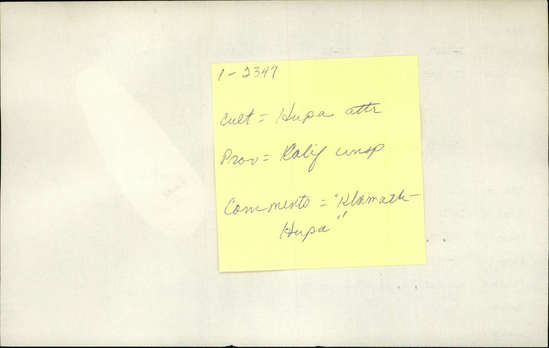 1-2347
Cult = Hupa attr
Prov = Calif unsp
Comments = "Klamath-
Hupa"